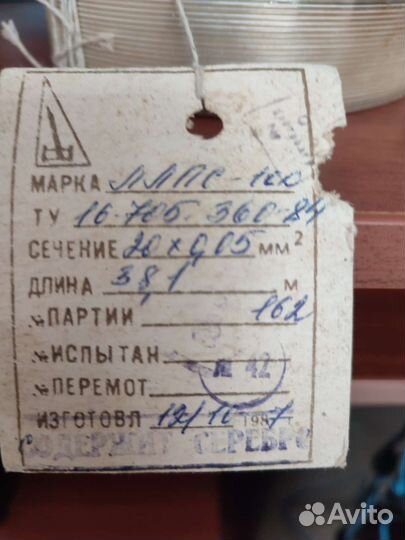 МАРКА ЛЛПС-100
ТУ 16-705.360-84
СЕЧЕНИЕ 20х0,05 мм²
ДЛИНА 38,1 м
№ ПАРТИИ 162
№ ИСПЫТАН
№ 42
№ ПЕРЕМОТ
ИЗГОТОВЛ 19/10 1987
СОДЕРЖИТ СЕРЕБРО
Avito